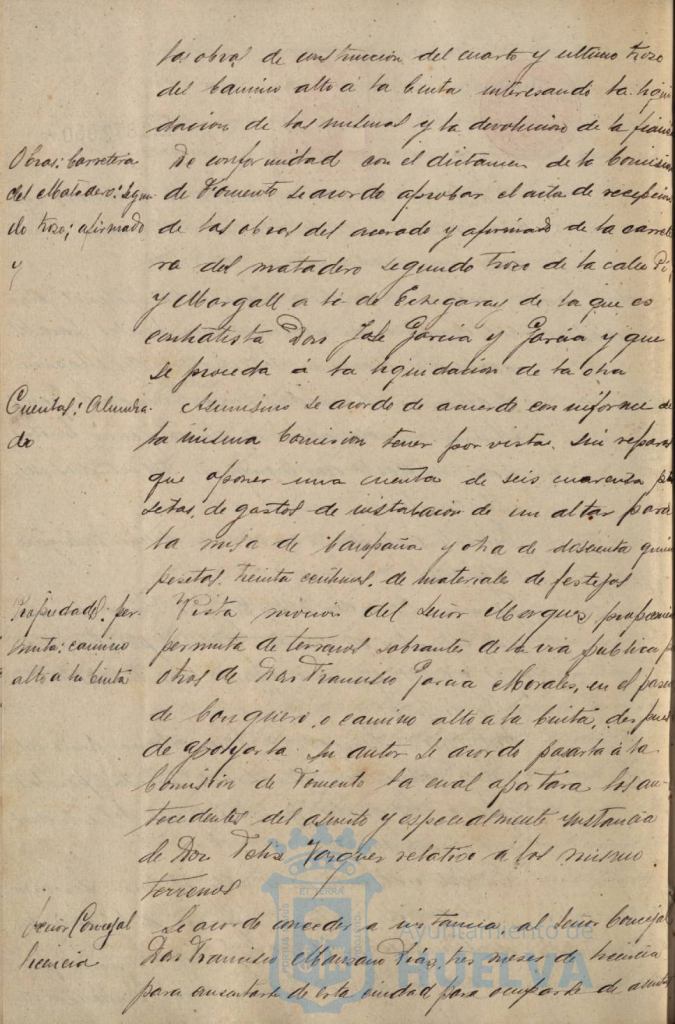 las obras de construccion del cuarto y ultimo trozo
del camino alto á la Cinta interesando la liqui
dacion de las mismas y la devolucion de la fianza
Obras: Carretera
del Matadero: Segun-
do trozo; afirmado
y
De conformidad con el dictamen de la Comision
de Fomento se acordo aprobar el acta de recepcion
de las obras del acerado y afirmado de la carrete
ra del matadero segundo trozo de la calle Pi
y Margall a la de Echegaray de la que es
contratista Don José Garcia y Garcia y que
se proceda á la liquidacion de la obra
Cuentas: Alumbra-
do
Asimismo se acordo de acuerdo con informe de
la misma Comision tener por vista sin reparos
que oponer una cuenta de seis cuarenta pe
setas, de gastos de instalacion de un altar para
la misa de Campaña y otra de doscienta quin
pesetas, treinta centimos, de materiales de festejos
Propiedades: per-
muta: camino
alto a la Cinta
Vista mocion del Señor Marquez proponien
permuta de terrenos sobrantes de la via publica
otros de Don Francisco Garcia Morales, en el paseo
de Conquero, o camino alto a la Cinta, despues
de apoyarla su autor se acordo pasarla á la
Comision de Fomento la cual aportara los an-
tecedentes del asunto y especialmente instancia
de Don Felix Vazquez relativa á los mismo
terrenos
Señor Concejal
licencia
Se acordo conceder a instancia al Señor Concejal
Don Francisco Manzano Diaz, tres meses de licencia
para ausentarse de esta ciudad para ocuparse de asunto
Ayuntamiento de
HUELVA